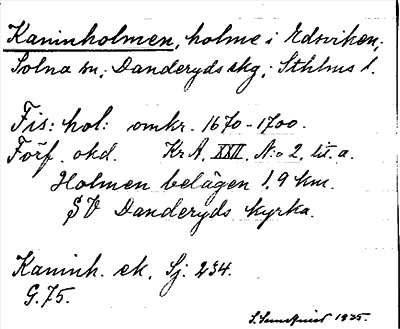 Kaninholmen, holme i Edsviken,
Solna sn, Danderyds skg, Sthlms l.
Fis: hol: omkr. 1670-1700.
Förf. okd. Kr A, XXII, N:o 2, lit. a.
Holmen belägen 1,9 km.
SV Danderyds kyrka.
Kaninh. ek. Sj: 234.
G. 75.
1935.